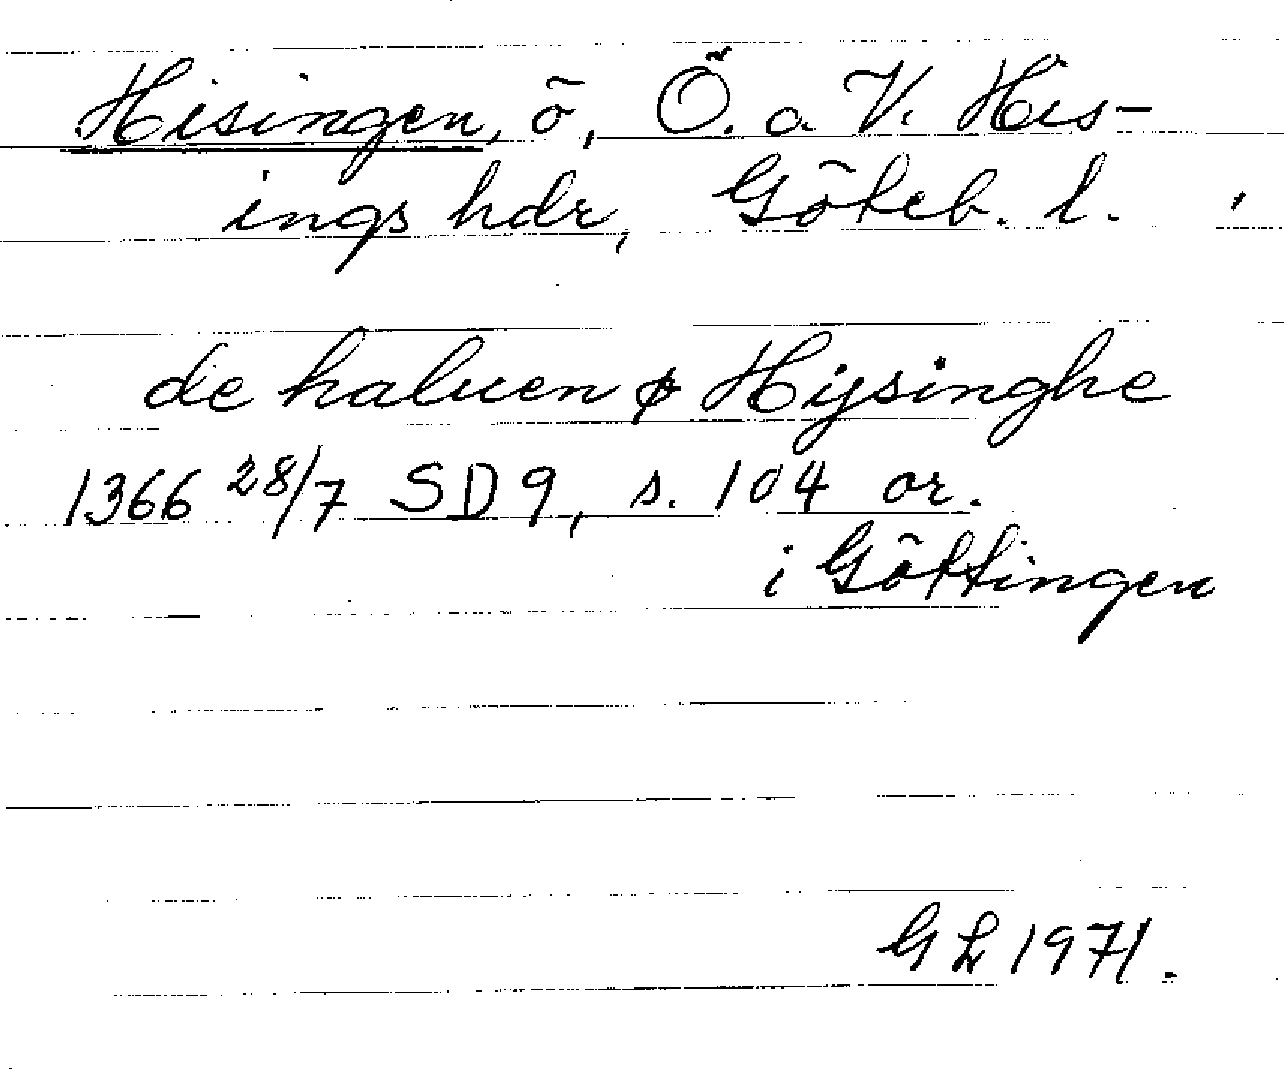 Hisingen, ö, Ö. o. V. His-
ings hdr, Göteb. l.
de haluen Hijsinghe
1366 28/7 SD 9, s. 104 or.
i Göttingen
GL 1971.